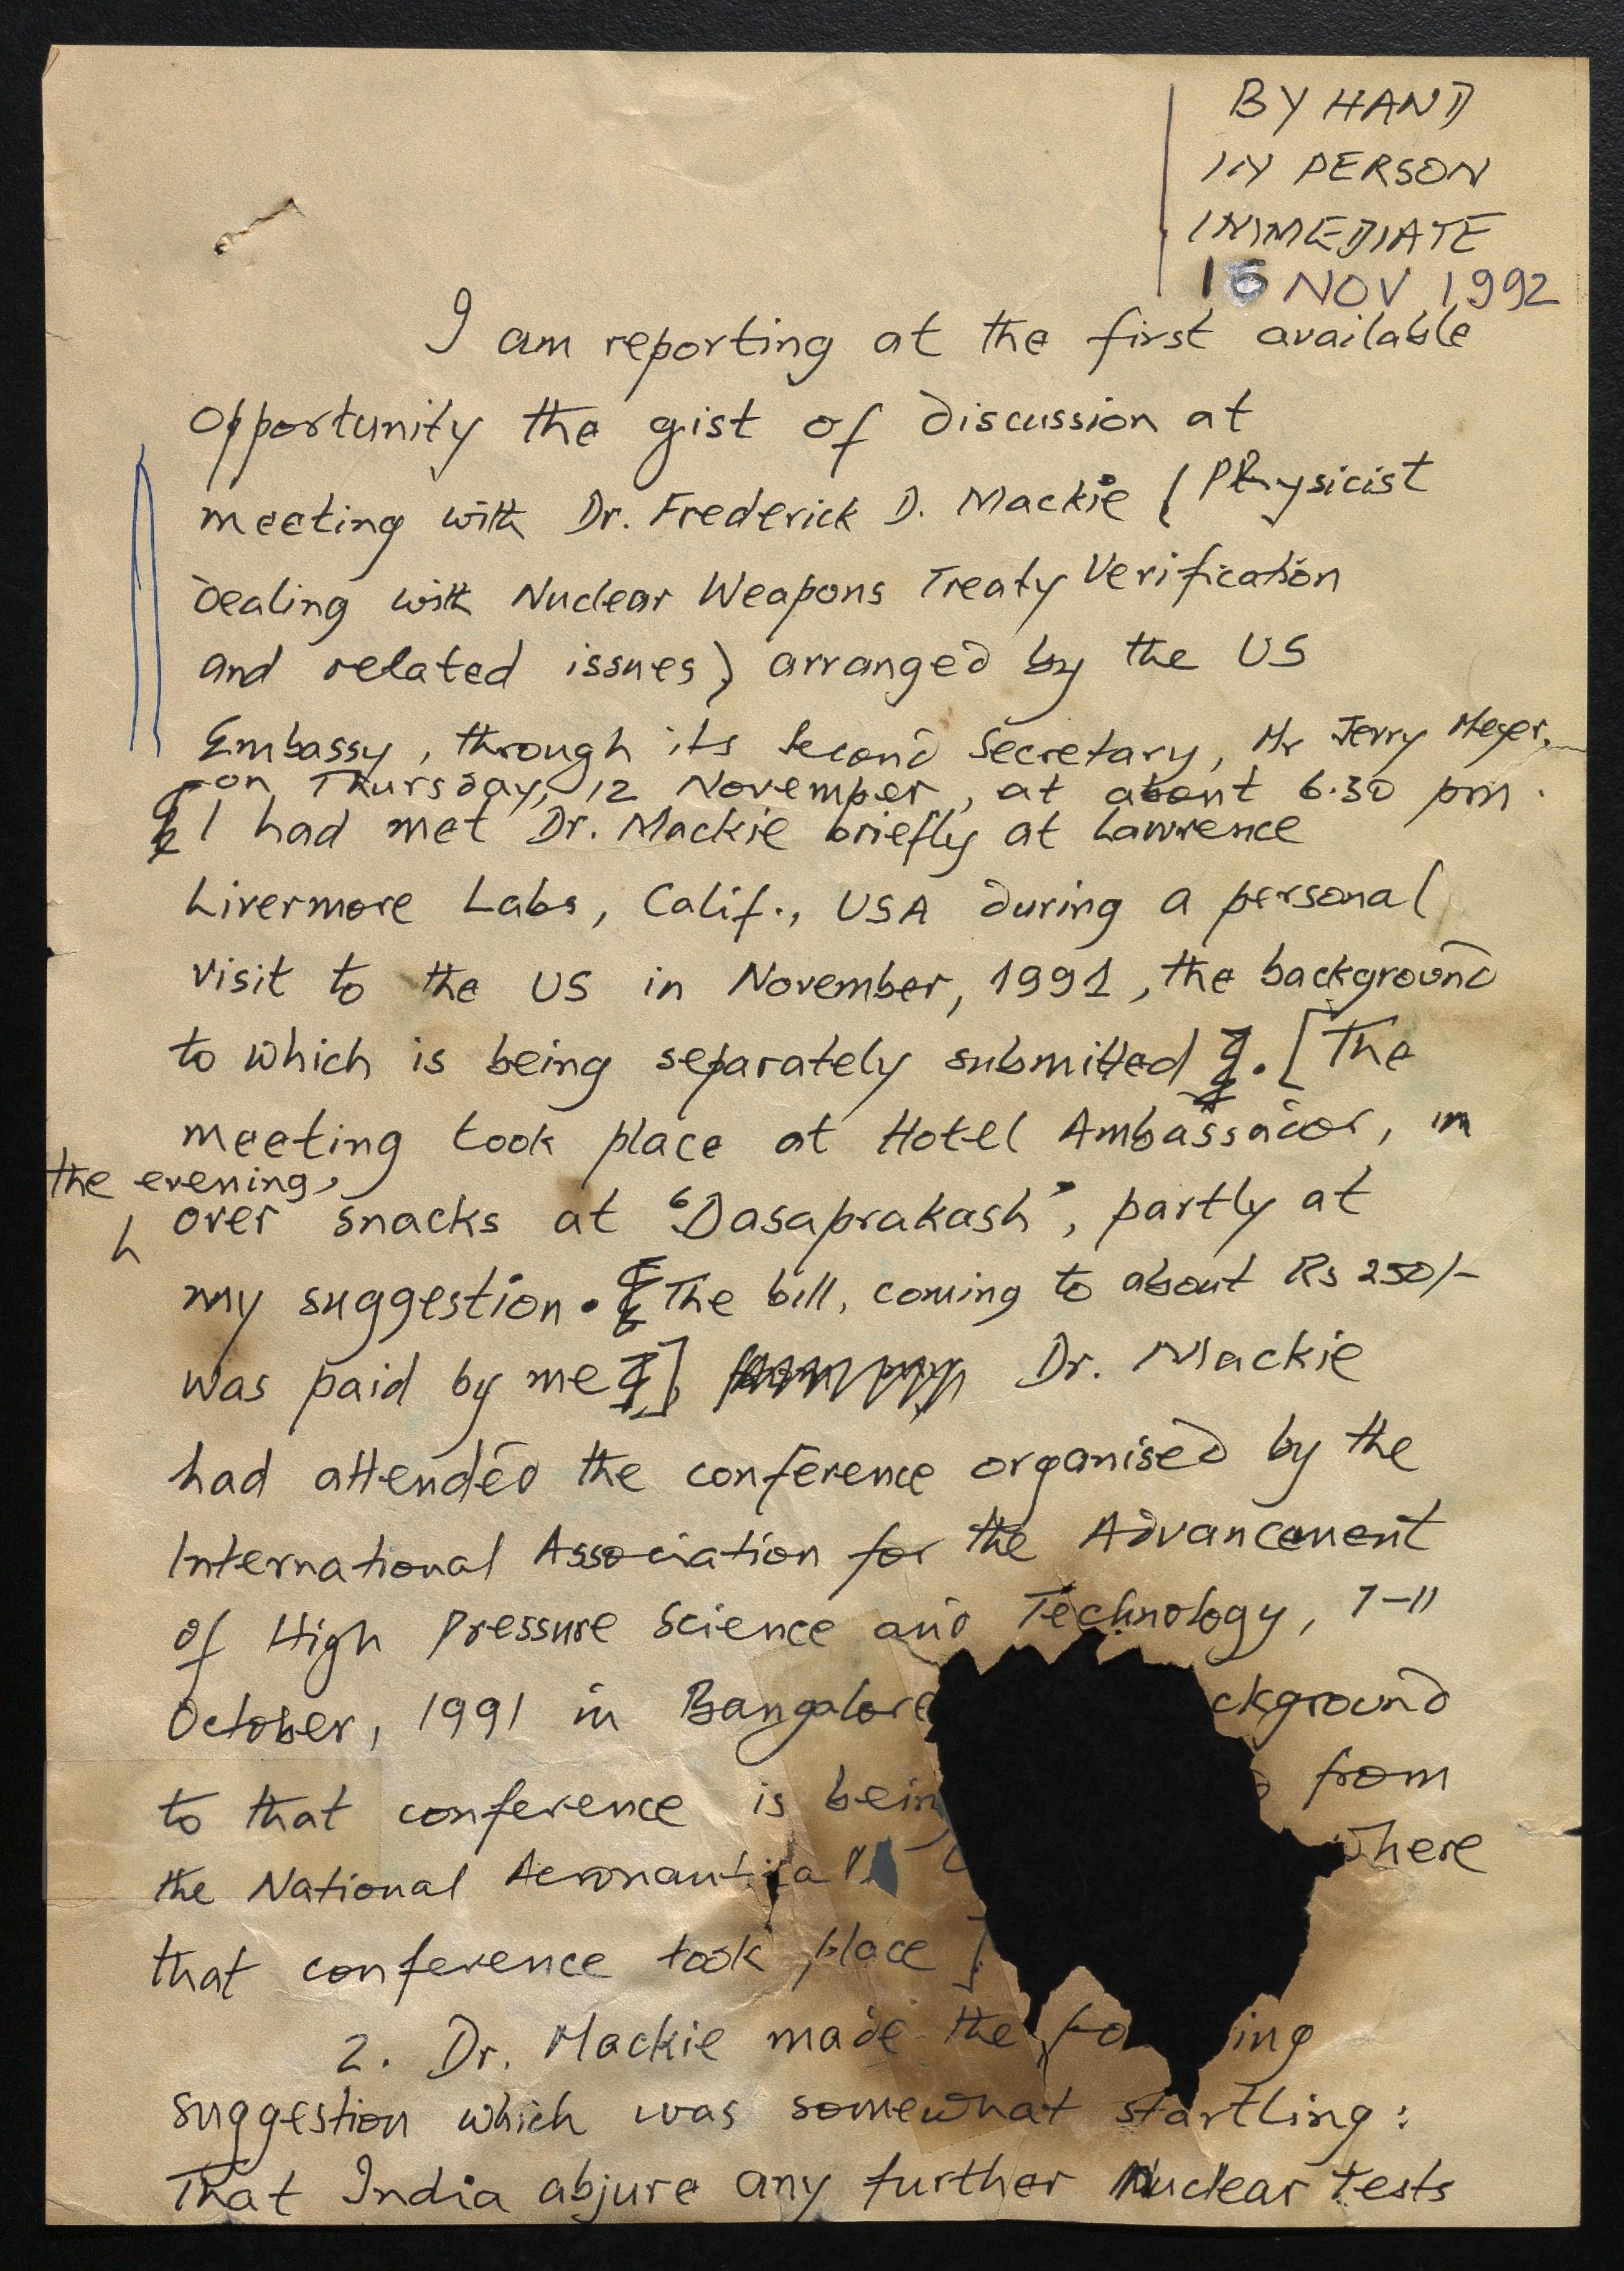 BY HAND
IN PERSON
IMMEDIATE
16 NOV 1992
I am reporting at the first available
opportunity the gist of discussion at
meeting with Dr. Frederick D. Mackie (Physicist
dealing with Nuclear Weapons Treaty Verification
and related issues) arranged by the US
Embassy, through its Second Secretary, Mr Jerry Meyer,
on Thursday, 12 November, at about 6.30 pm.
I had met Dr. Mackie briefly at Lawrence
Livermore Labs, Calif., USA during a personal
visit to the US in November, 1991, the background
to which is being separately submitted. [The
meeting took place at Hotel Ambassador, in
the evening,
over snacks at 'Dasaprakash', partly at
my suggestion. The bill, coming to about Rs 250/-
was paid by me] Dr. Mackie
had attended the conference organised by the
International Association for the Advancement
of High Pressure Science and Technology, 7-11
October, 1991 in Bangalore ckground
to that conference is being from
the National Aeronautical where
that conference took place].
2. Dr. Mackie made the fo ing
suggestion which was somewhat startling:
That India abjure any further Nuclear tests